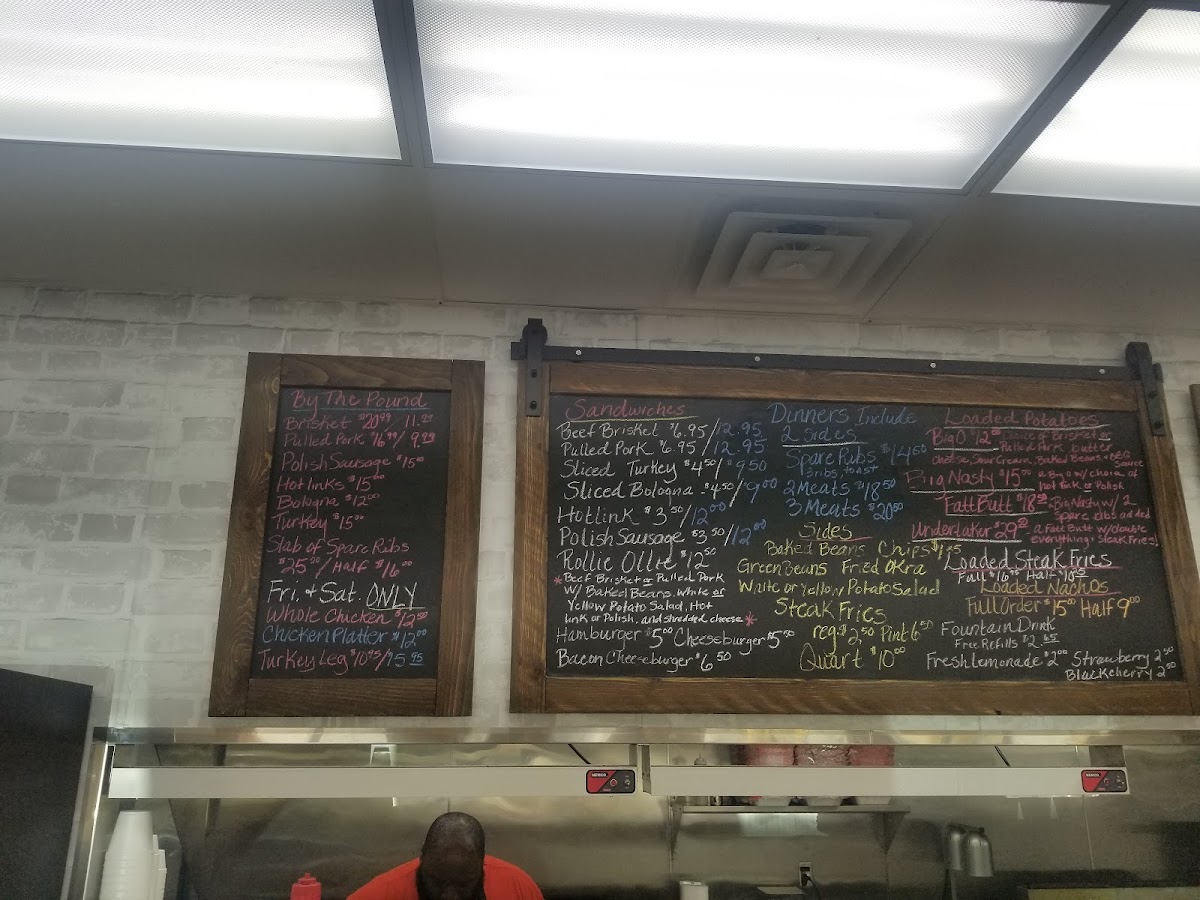 By The Pound
Brisket $20.99/ 11.29
Pulled Pork 16.99/ 9.29
Polish Sausage $15.00
Hotlinks $15.00
Bologna $12.00
Turkey $15.00
Slab of Spare Ribs
$25.00/Half $16.00
Fri. & Sat. ONLY
Whole Chicken $12.50
Chicken Platter $12.00
Turkey Leg $10.95/15.95
Sandwiches
Beef Brisket $6.95/12.95
Pulled Pork $6.95/12.95
Sliced Turkey $4.50/$9.50
Sliced Bologna $4.50/$9.00
Hotlink $3.50/12.00
Polish Sausage $3.50/12.00
Rollie Ollie $12.50
*Beef Brisket or Pulled Pork
w/ Baked Beans, White or
Yellow Potato Salad, Hot
link or Polish, and shredded cheese*
Hamburger $5.00 Cheeseburger $5.50
Bacon Cheeseburger $6.50
Dinners Include
2 Sides
Spare Ribs $14.50
5 ribs, toast
2 Meats $18.50
3 Meats $20.50
Sides
Baked Beans Chips
Green Beans Fried Okra
White or Yellow Potato Salad
Steak Fries
reg. $2.50 Pint 6.50
Quart $10.00
Loaded Potatoes
Big O $12.00 Choice of Brisket or
Pulled Pork, Butter
Cheese, Sour Cream, Baked Beans + BBQ
Sauce
Big Nasty $15.00 a Big O w/choice of
hot link or Polish
Fatt Butt $18.50 Big Nasty w/2
Spare ribs added
Undertaker $29.00 a Fatt Butt w/double
everything & Steak Fries)
Loaded Steak Fries
Full $16.00 Half $10.50
Loaded Nachos
Full Order $15.00 Half 9.00
Fountain Drink
Free Refills $2.65
Fresh Lemonade $2.00 Strawberry 2.50
Blackcherry 2.50